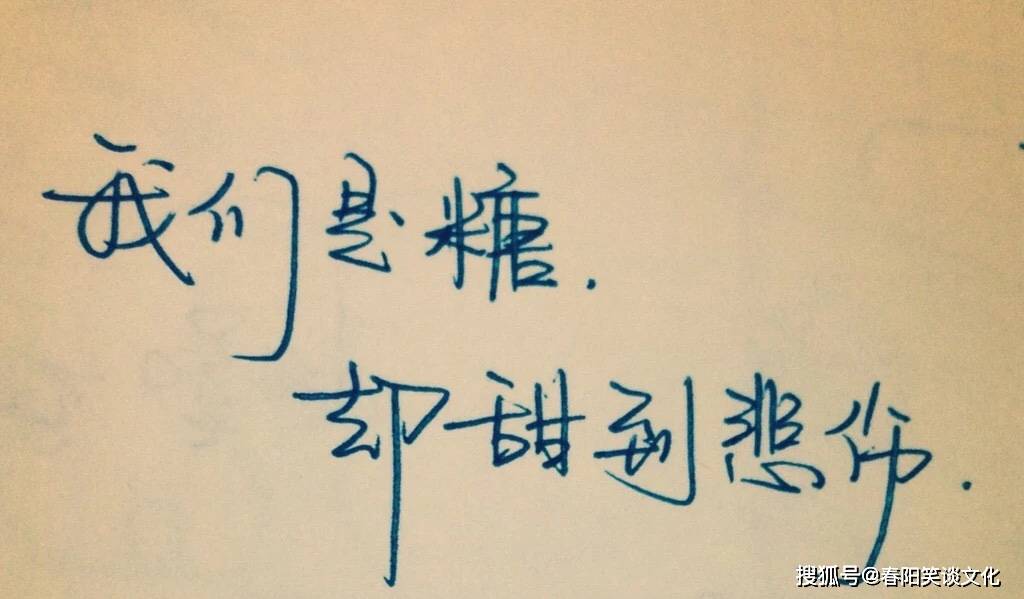 我们是糖.
却甜到悲伤.
搜狐号@春阳笑谈文化